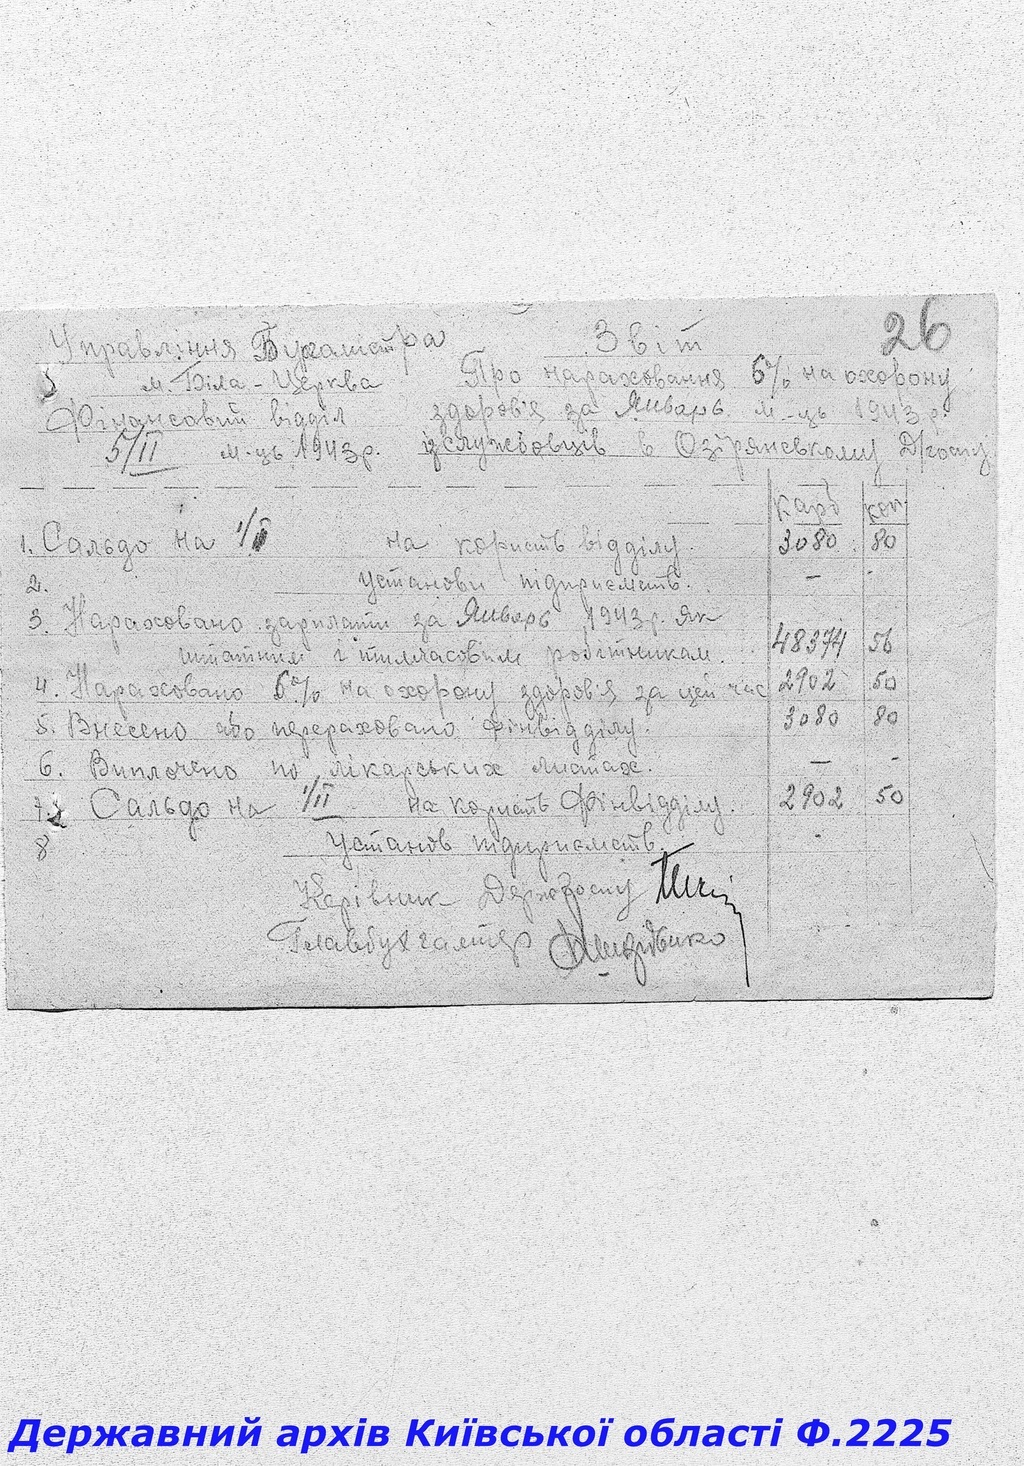 26
Управління Бургамістра
м. Біла-Церква
Фінансовий відділ
5/II м-ць 1943 р.
Звіт
Про нараховання 6% на охорону
здоров'я за Январь м-ць 1943 р.
із службовців в Озірянському Д/госпу
карб коп.
1. Сальдо на 1/ на користь відділу. 3080 80
2. установи підприємств. — -
3. Нараховано зарплати за Январь 1943 р. як
штатним і тимчасовим робітникам. 48374 56
4. Нараховано 6% на охорону здоров'я за цей час 2902 50
5. Внесено або перераховано фінвідділу. 3080 80
6. Виплочено по лікарських листах. — -
7. Сальдо на 1/II на користь Фінвідділу. 2902 50
8 Установ підприємств. -
Керівник Держгоспу
Главбухгалтер
Державний архів Київської області Ф.2225